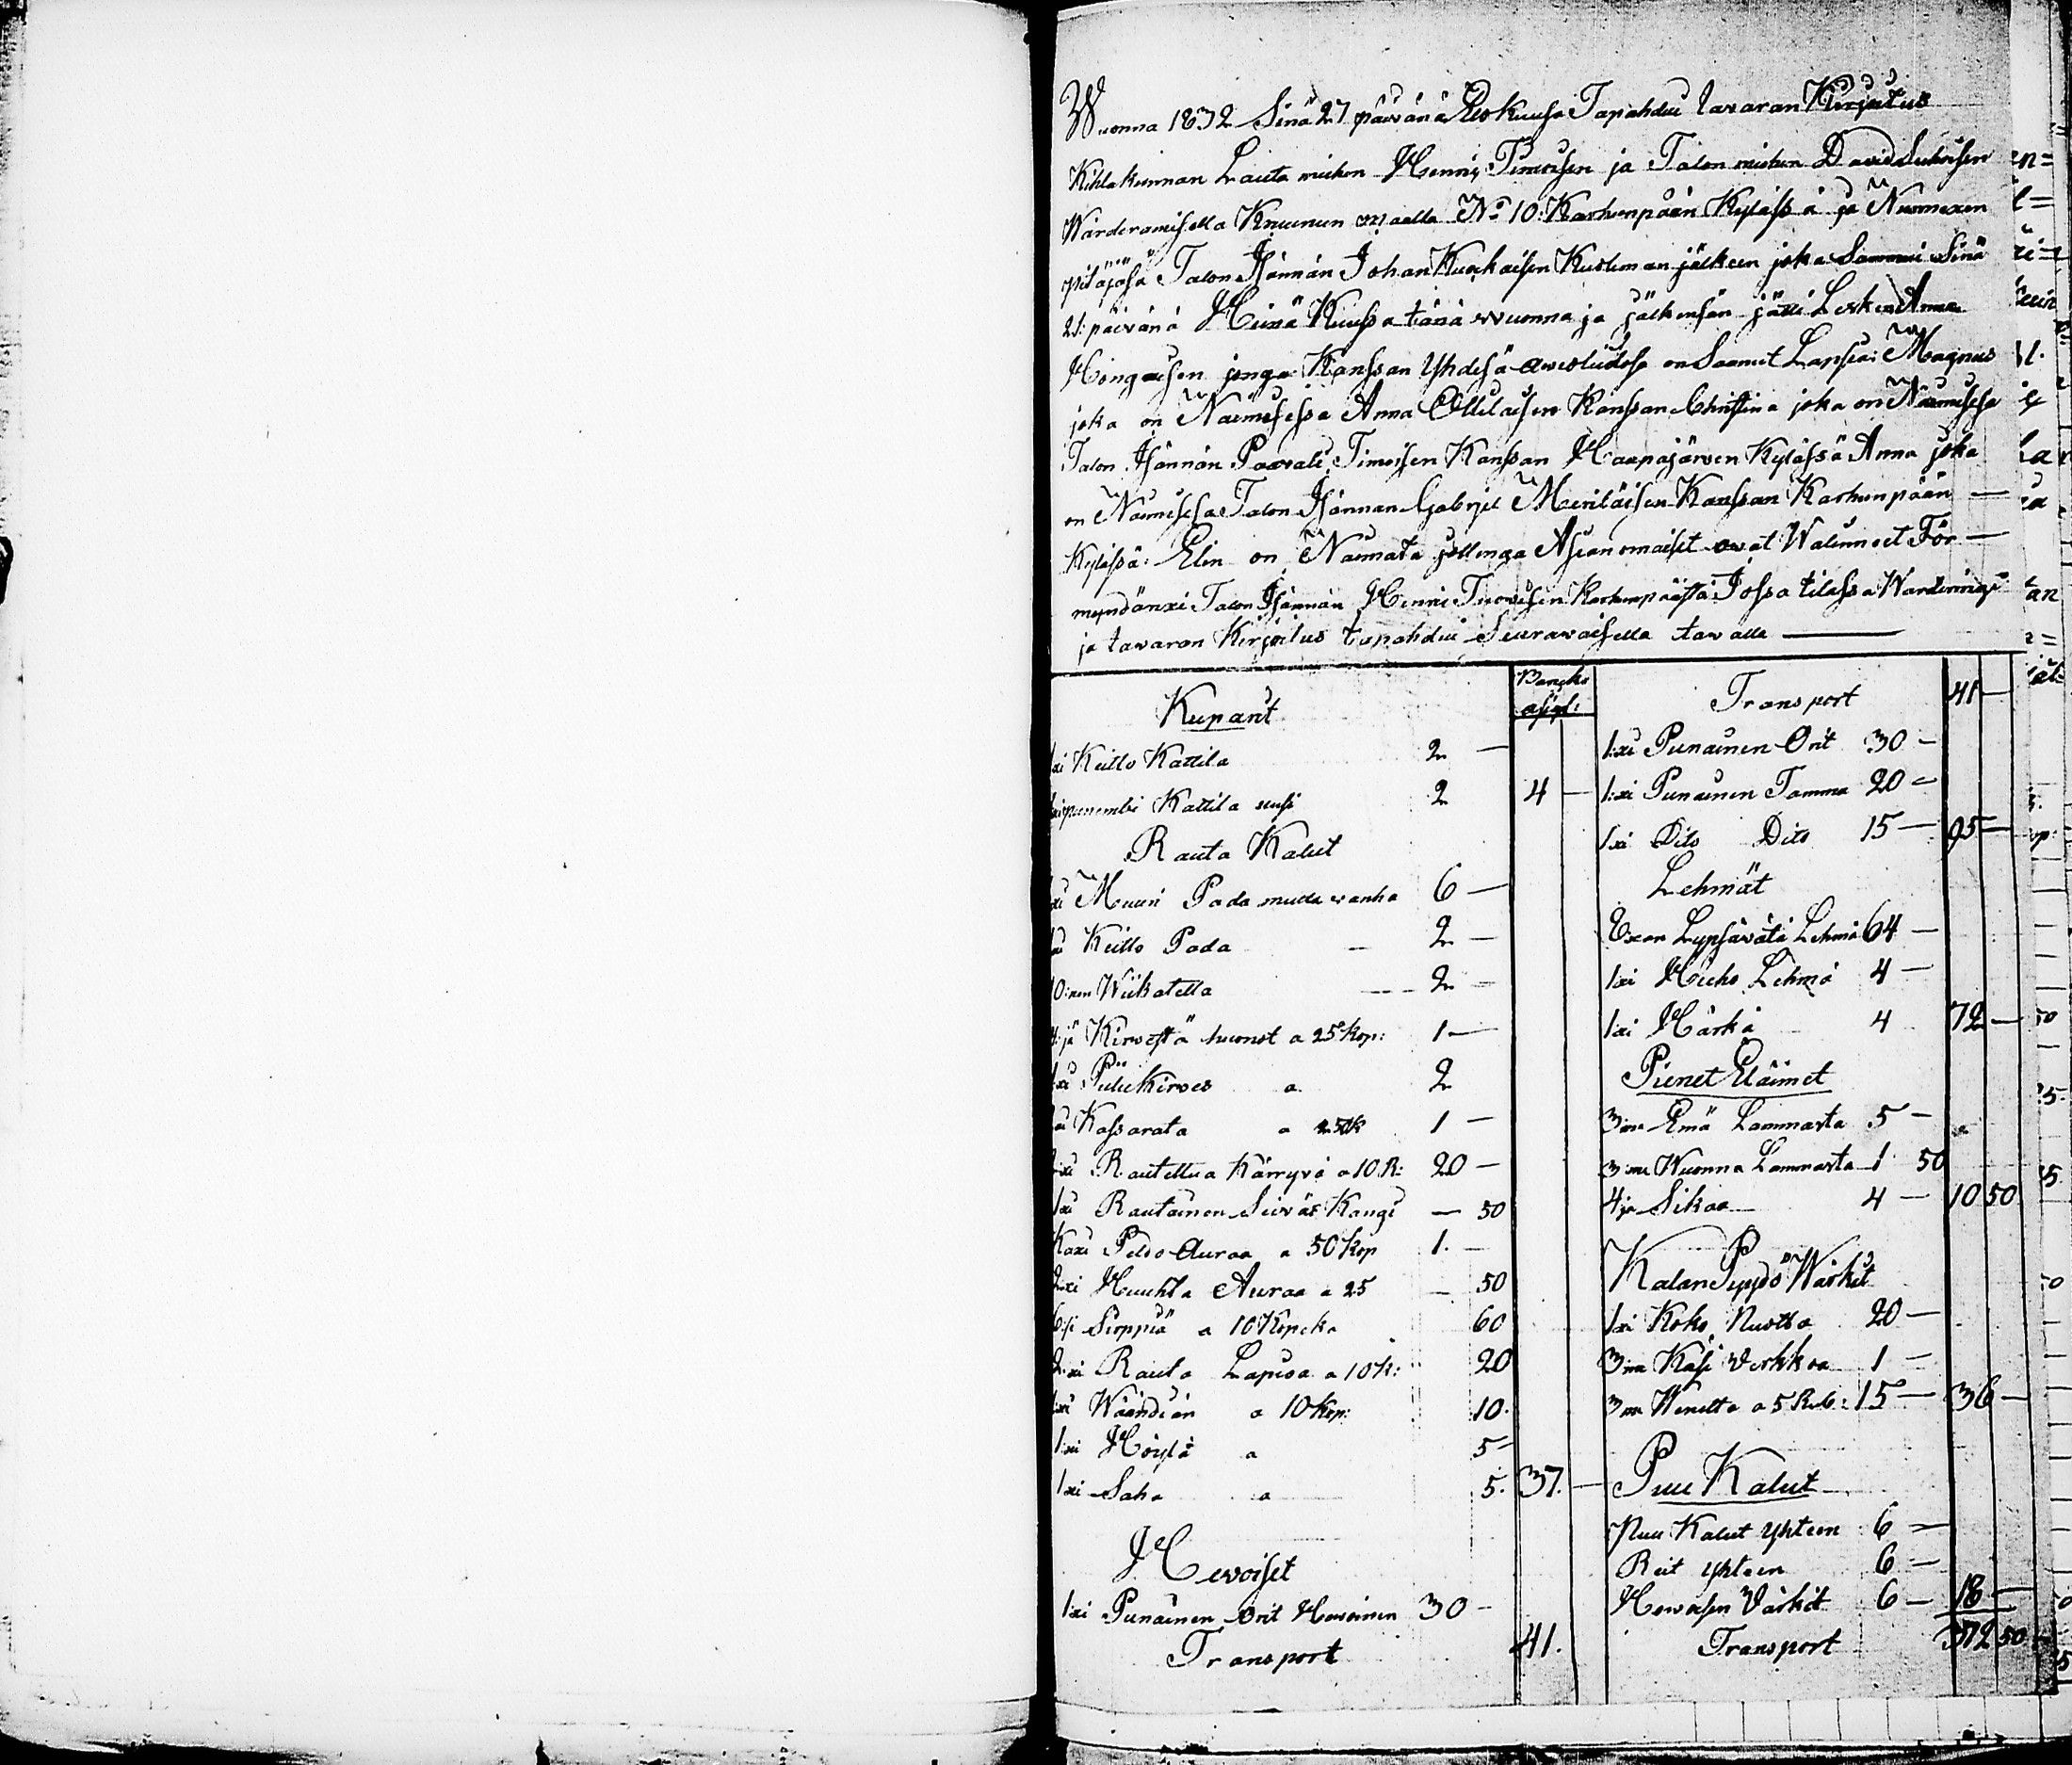 Wuonna 1832 Sinä 27 päivänä Elokuusa Tapahdui tavaran Kirjoitus
Kihlakunnan Lauta miehen Henrik Timoisen ja Talon miehen David Suhoisen
Wärderamisella Kruunun maalla No 10: Karhunpään Kylässä ja Nurmexen
pitäjäsä Talon Isännän Johan Kuokaisen Kuoleman jälkeen joka Sammui Sinä
21: päivänä Heinä Kuussa tänä vuonna ja jälkensän jätti Lesken Anna
Hongaisen jonga Kanssan Yhdesä aviosäädösä on Saanut Lapsia: Magnus
joka on Naimisessa Anna Ollilaisen Kanssan Christina joka on Naimisessa
Talon Isännän Paavali Timoisen Kanssan Haapajärven Kylässä Anna joka
on Naimisessa Talon Isännän Gabrjel Meriläisen Kanssan Karhunpään —
Kylässä: Elin on Naimata jollenga Asianomaiset ovat Walinneet För —
myndärixi Talon Isännän Henric Tuovisen Karhunpäästä Jossa tilassa Wärderingi
ja tavaran Kirjoitus tapahdui Seuravaisella tavalla —
Kupari
Bancko
assigt:
1:xi Keitto Kattila 2 —
1:xi panembi Kattila uusi 2 4 —
Rauta Kalut
1:xi Muuri Pada mutta vanha 6 —
1:xi Keitto Pada — 2 —
10:nen Wiikatetta 2 —
4:jä Kirvestä huonot a 25 kop: 1 —
1:xi Piilukirves a 2
Kassarata a 25 k 1 —
2:xi Rautettua Kärryjä a 10 R: 20 —
1:xi Rautainen Seiväs Kangi — 50
Kaxi Peldo Auraa a 50 kop 1. —
2:xi Huuhta Auraa a 25 — 50
6:si Sirppiä a 10 Kopeka 60
2:xi Rauta Lapioa a 10 k: 20
1:xi Wäändiän a 10 kop: 10.
1:xi Höylä a 5
1:xi Saha a 5. 37. —
Hevoiset
1:xi Punainen Orit Hevoinen 30 —
Transport 41.
Transport 41 —
1:xi Punainen Orit 30 —
1:xi Punainen Tamma 20 —
1:xi Dito Dito 15 — 95 —
Lehmät
Lypsävätä Lehmä 64 —
1:xi Hieho Lehmä 4 —
1:xi Härkä 4 72 —
Pienet Eläimet
3:me Emä Lammasta 5 —
3:me Wuonna Lammasta 1 50
4:jä Sikaa 4 — 10 50
Kalan Pyydö Wärkit
1:xi Koko Nuotta 20 —
3:me Käsi Verkkoa 1 —
3:me Wenettä a 5 Rub: 15 — 36 —
Puu Kalut
Puu Kalut Yhteen 6 —
Reit yhteen 6 —
Hevosen Värkit 6 — 18 —
Transport 372 50